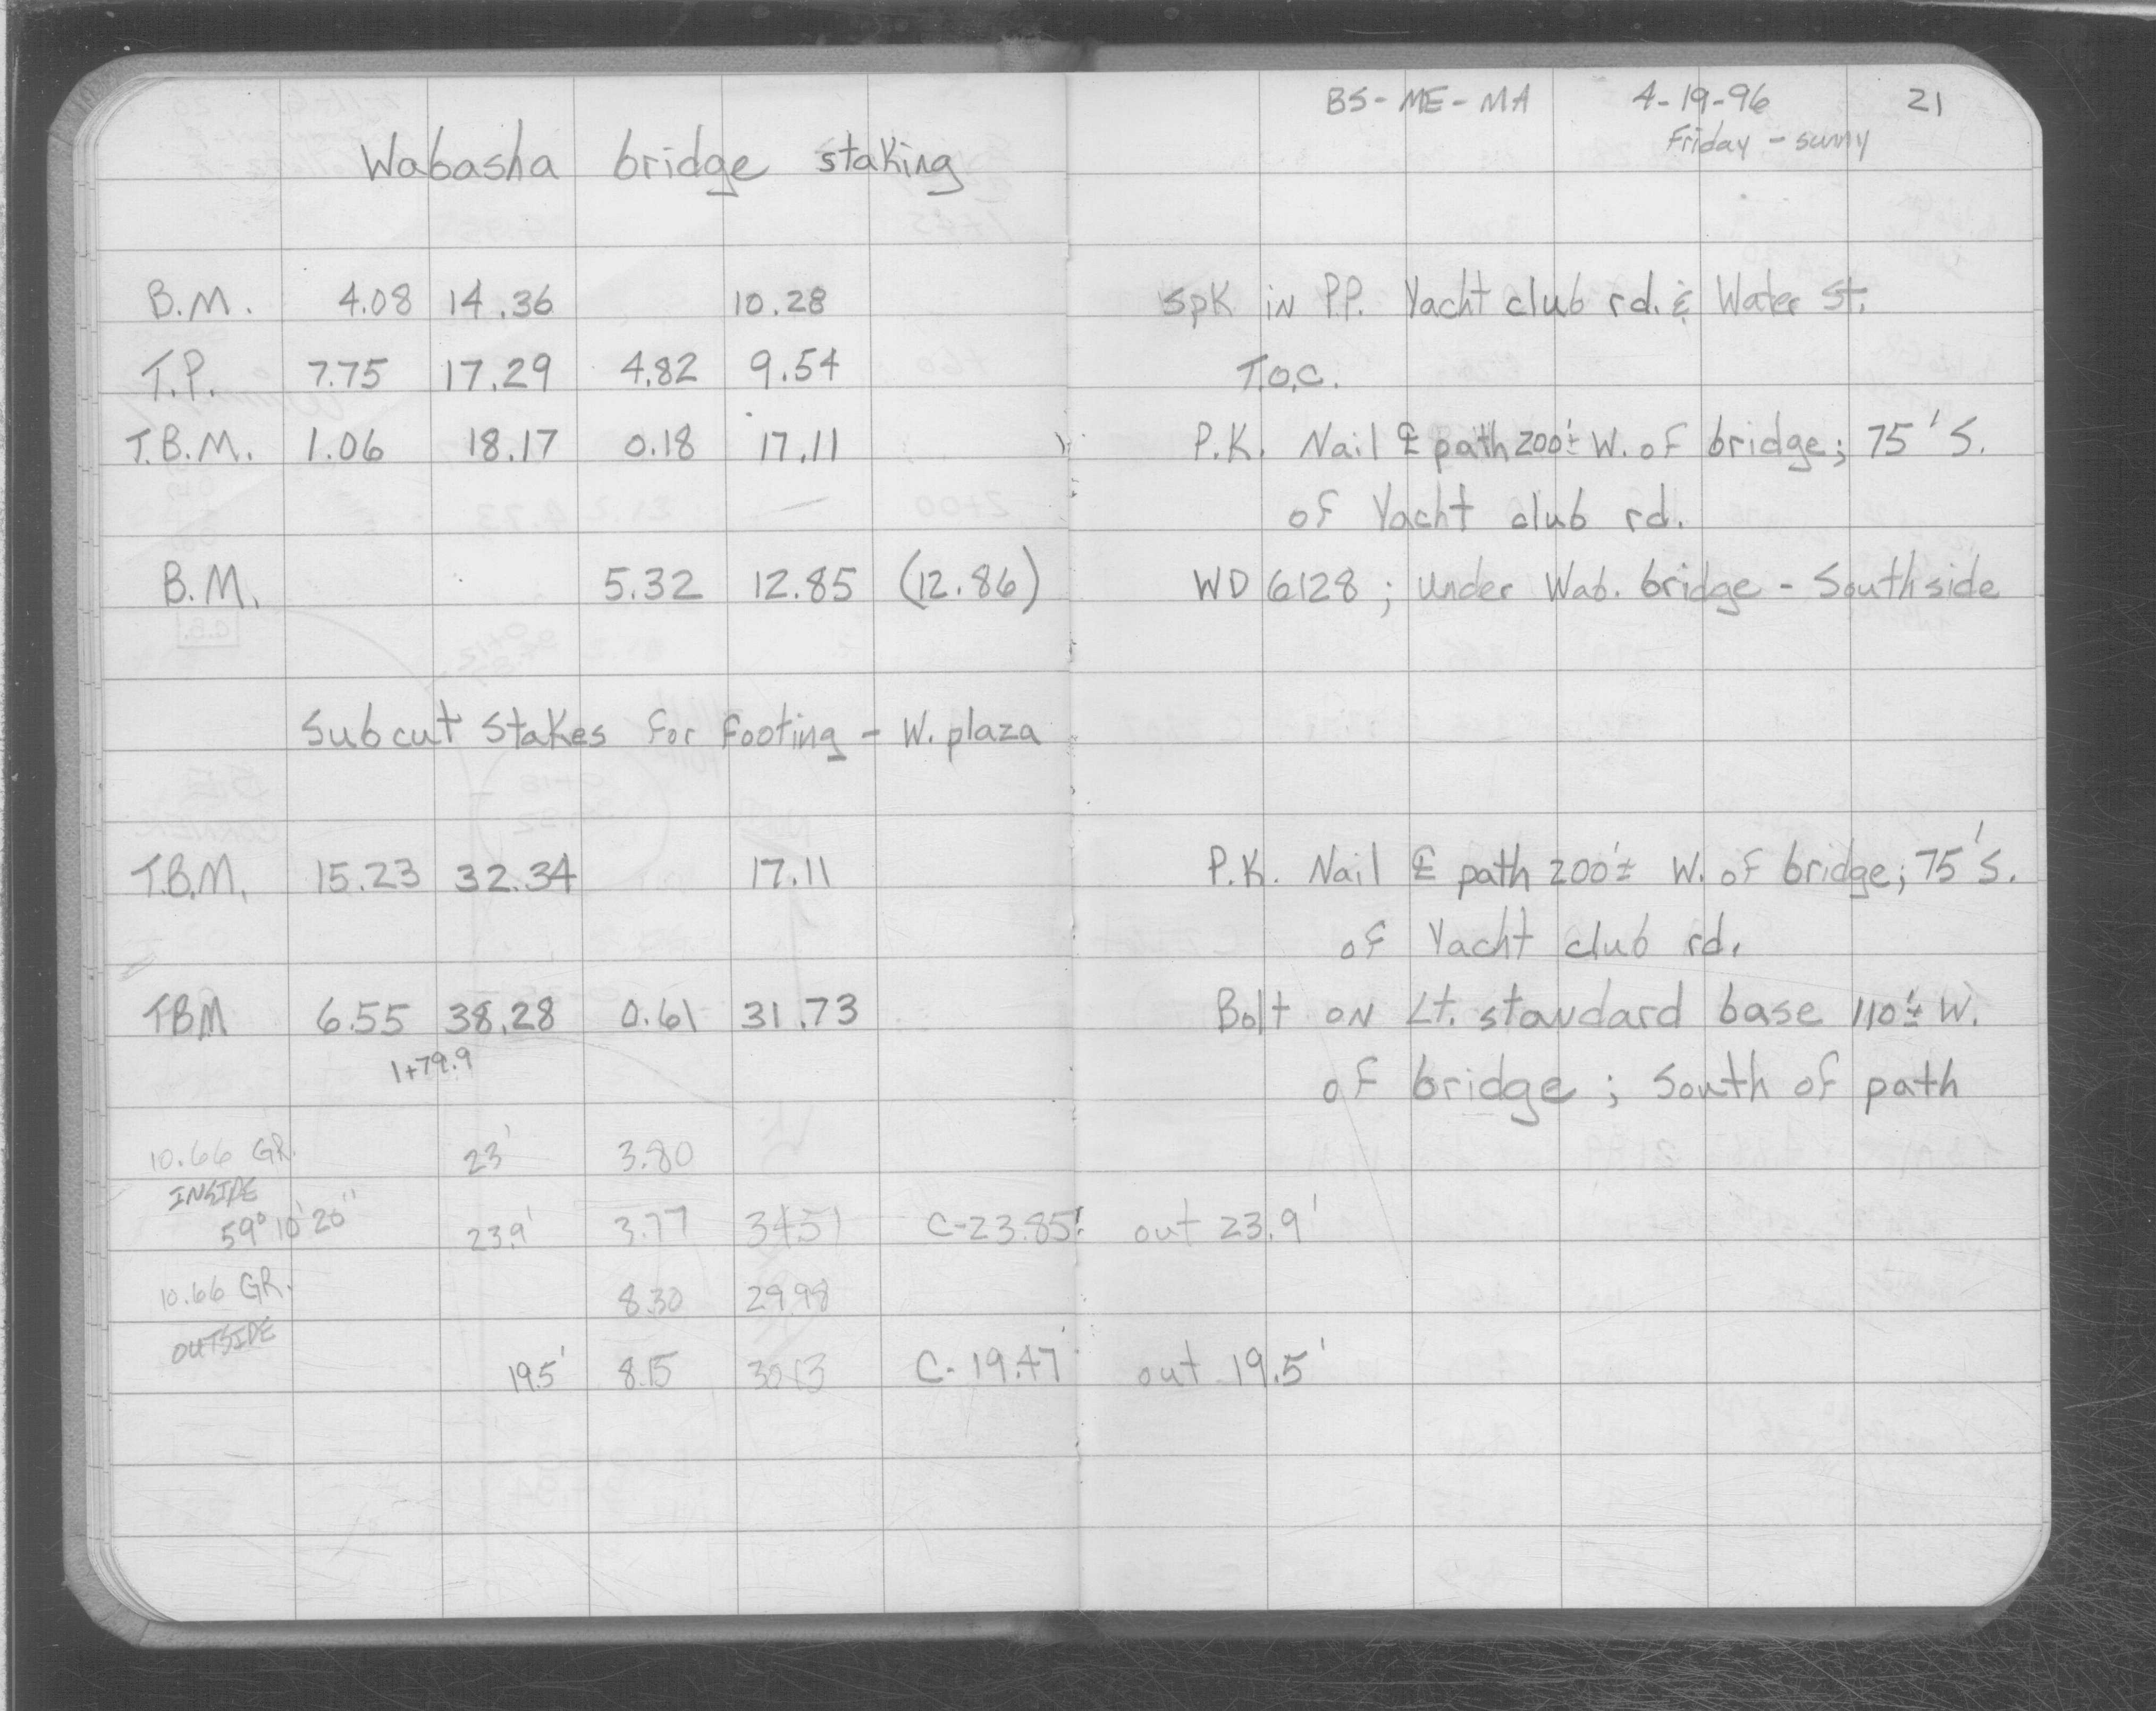 BS-ME-MA 4-19-96 21
Friday - sunny
Wabasha bridge staking
B.M. 4.08 14.36 10.28 spk in P.P. Yacht club rd. & Water St.
T.P. 7.75 17.29 4.82 9.54 T.O.C.
T.B.M. 1.06 18.17 0.18 17.11 P.K. Nail ℄ path 200'± W. of bridge; 75' S.
of Yacht club rd.
B.M. 5.32 12.85 (12.86) WD 6128; Under Wab. bridge - Southside
Subcut Stakes for Footing - W. plaza
T.B.M. 15.23 32.34 17.11 P.K. Nail ℄ path 200'± W. of bridge; 75' S.
of Yacht club rd.
TBM 6.55 38.28 0.61 31.73 Bolt on Lt. standard base 110'± W.
1+79.9 of bridge; South of path
10.66 GR. 23' 3.80
INSIDE
59° 10' 20" 23.9' 3.77 34.51 C-23.85' out 23.9'
10.66 GR. 8.30 29.98
OUTSIDE
19.5' 8.15 30.13 C-19.47' out 19.5'